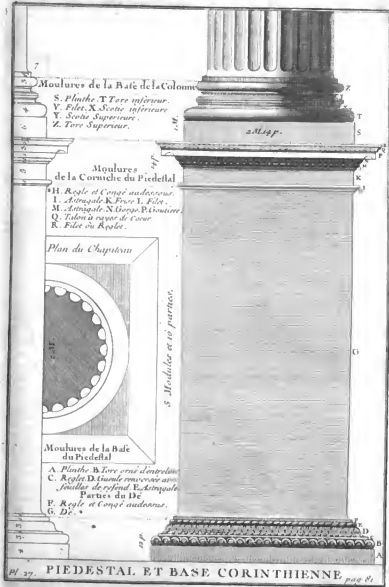 Moulures de la Base de la Colonne
S. Plinthe. T Tore inférieur.
V. Filet. X. Scotie inférieure
Y. Scotie Superieure.
Z. Tore Superieur.
Moulures
de la Corniche du Piedestal
H. Regle et Congé audessous.
I. Astragale. K. Frise. L. Filet.
M. Astragale. N. Gorge. P. Gouttiere.
Q. Talon à rayes de Coeur
R. Filet ou Reglet.
Plan du Chapiteau
5 Modules et 10 parties.
2 M. 14 p.
Moulures de la Base
du Piedestal
A. Plinthe. B. Tore orné d'entrelas
C. Reglet. D. Gueule renversée avec
feuilles de refend. E. Astragale
Parties du Dé
F. Regle et Congé audessus.
G. Dé.
Z
T
S
K
I
G
B
A
Pl. 27. PIEDESTAL ET BASE CORINTHIENNE pag 81